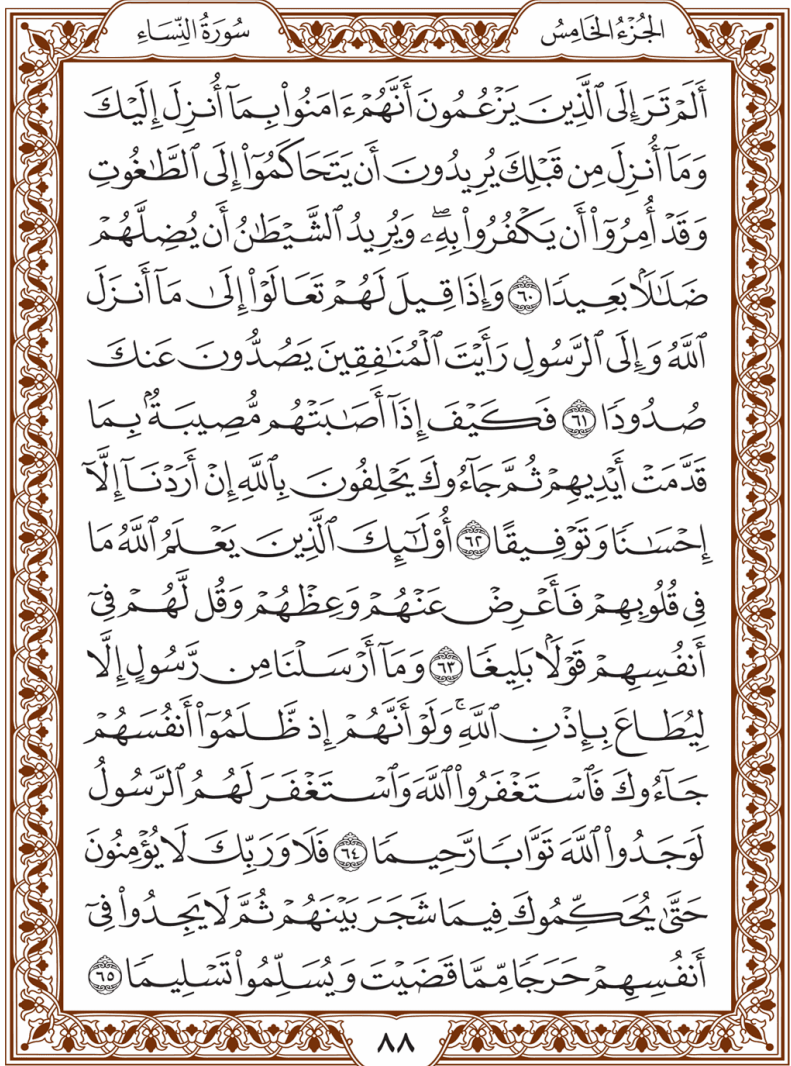 الجُزْءُ الخَامِسُ
سُورَةُ النِّسَاءِ
أَلَمْ تَرَ إِلَى ٱلَّذِينَ يَزْعُمُونَ أَنَّهُمْ ءَامَنُوا۟ بِمَآ أُنزِلَ إِلَيْكَ
وَمَآ أُنزِلَ مِن قَبْلِكَ يُرِيدُونَ أَن يَتَحَاكَمُوٓا۟ إِلَى ٱلطَّـٰغُوتِ
وَقَدْ أُمِرُوٓا۟ أَن يَكْفُرُوا۟ بِهِۦۖ وَيُرِيدُ ٱلشَّيْطَـٰنُ أَن يُضِلَّهُمْ
ضَلَـٰلَۢا بَعِيدًا ٦٠ وَإِذَا قِيلَ لَهُمْ تَعَالَوْا۟ إِلَىٰ مَآ أَنزَلَ
ٱللَّهُ وَإِلَى ٱلرَّسُولِ رَأَيْتَ ٱلْمُنَـٰفِقِينَ يَصُدُّونَ عَنكَ
صُدُودًا ٦١ فَكَيْفَ إِذَآ أَصَـٰبَتْهُم مُّصِيبَةُۢ بِمَا
قَدَّمَتْ أَيْدِيهِمْ ثُمَّ جَآءُوكَ يَحْلِفُونَ بِٱللَّهِ إِنْ أَرَدْنَآ إِلَّآ
إِحْسَـٰنًا وَتَوْفِيقًا ٦٢ أُو۟لَـٰٓئِكَ ٱلَّذِينَ يَعْلَمُ ٱللَّهُ مَا
فِى قُلُوبِهِمْ فَأَعْرِضْ عَنْهُمْ وَعِظْهُمْ وَقُل لَّهُمْ فِىٓ
أَنفُسِهِمْ قَوْلَۢا بَلِيغًا ٦٣ وَمَآ أَرْسَلْنَا مِن رَّسُولٍ إِلَّا
لِيُطَاعَ بِإِذْنِ ٱللَّهِۚ وَلَوْ أَنَّهُمْ إِذ ظَّلَمُوٓا۟ أَنفُسَهُمْ
جَآءُوكَ فَٱسْتَغْفَرُوا۟ ٱللَّهَ وَٱسْتَغْفَرَ لَهُمُ ٱلرَّسُولُ
لَوَجَدُوا۟ ٱللَّهَ تَوَّابًا رَّحِيمًا ٦٤ فَلَا وَرَبِّكَ لَا يُؤْمِنُونَ
حَتَّىٰ يُحَكِّمُوكَ فِيمَا شَجَرَ بَيْنَهُمْ ثُمَّ لَا يَجِدُوا۟ فِىٓ
أَنفُسِهِمْ حَرَجًا مِّمَّا قَضَيْتَ وَيُسَلِّمُوا۟ تَسْلِيمًا ٦٥
٨٨